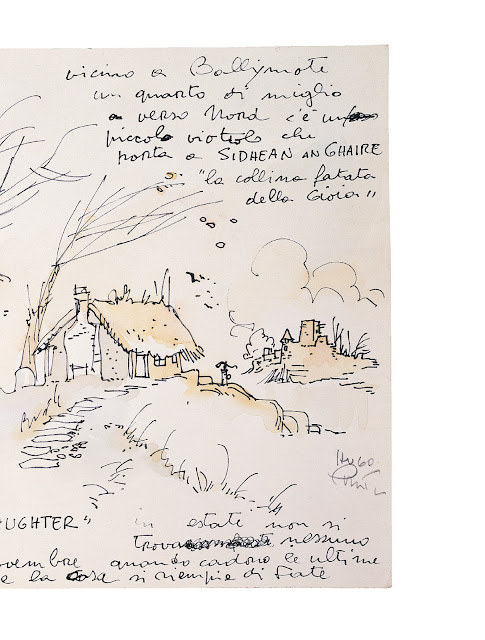 vicino a Ballymote
un quarto di miglio
a verso Nord c'è un
piccolo viottolo che
porta a SIDHEAN AN GHAIRE
"la collina fatata
della Gioia"
Hugo
Pratt
UGHTER" in estate non si
trova nessuno
ovembre quando cadono le ultime
e la casa si riempie di Fate